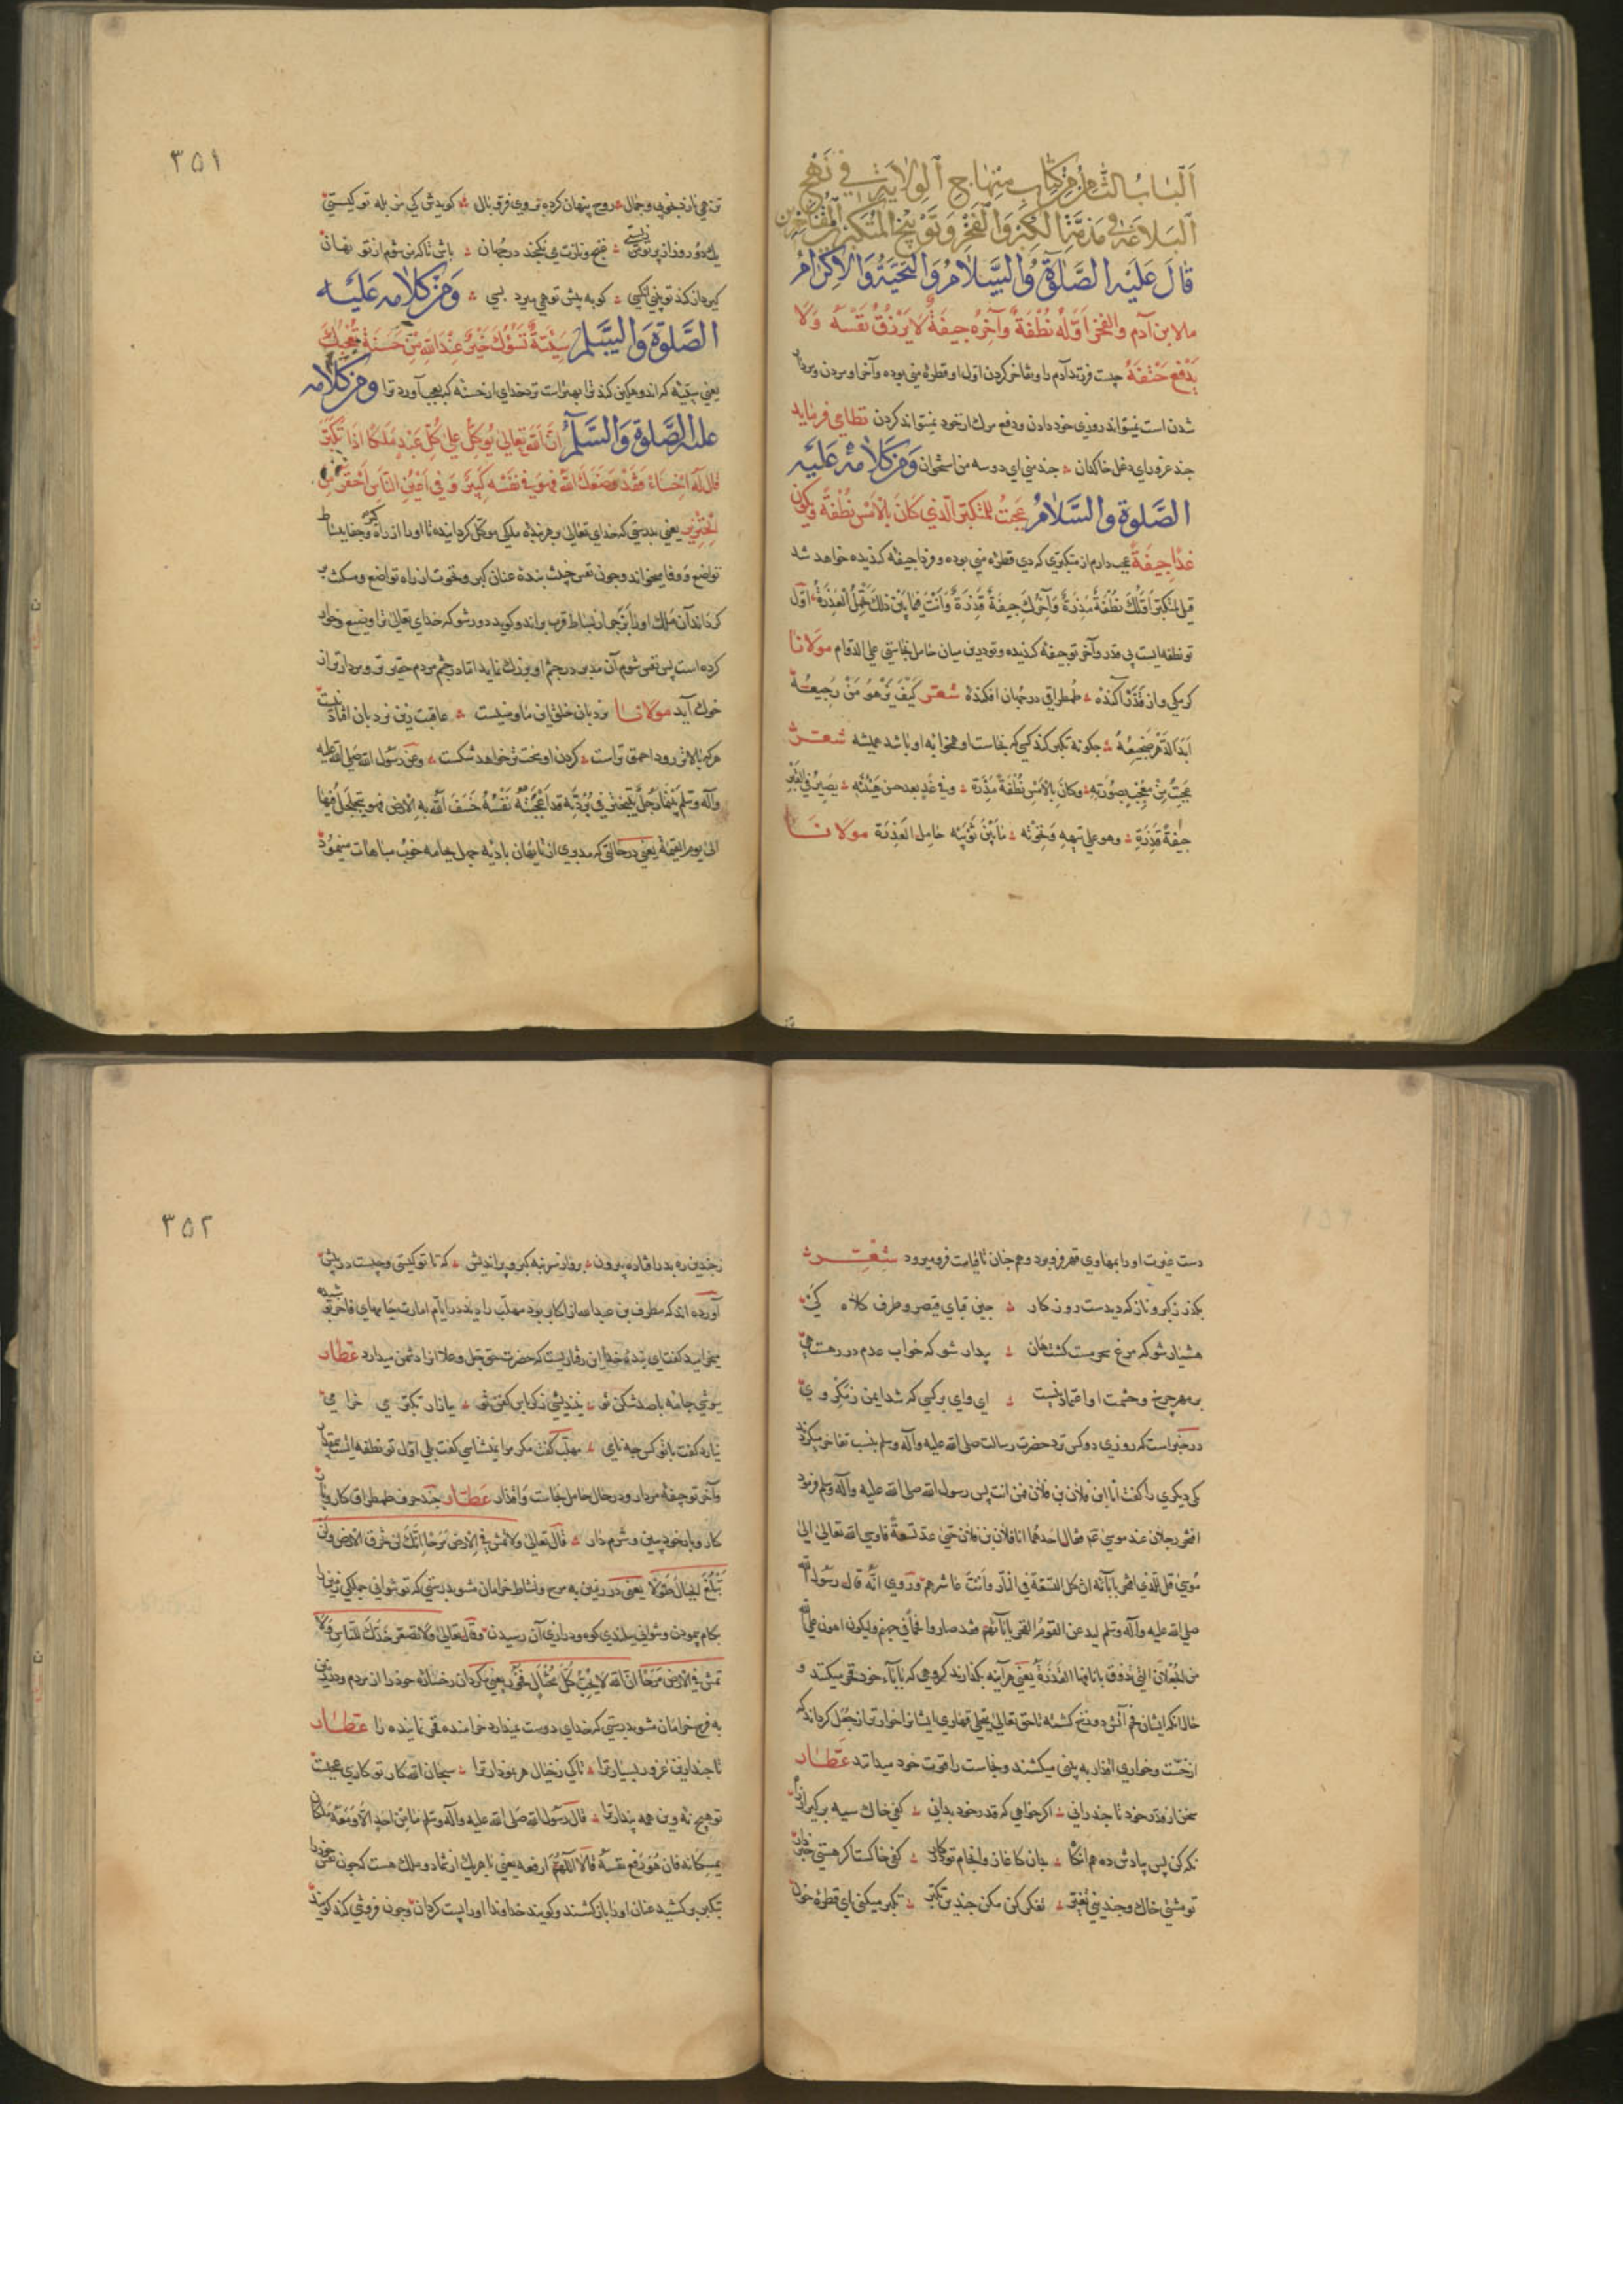 الباب الثامن من كتاب منهاج الولاية في نهج
البلاغة في مذمة الكبر والفخر وتوبيخ المتكبر المفاخر
قال عليه الصلوة والسلام والتحية والاكرام
ما لابن آدم والفخر اوله نطفة وآخره جيفة لا يرزق نفسه ولا
يدفع حتفه چيست فرزند آدم را و تفاخر كردن اول او قطره مني بوده و آخر او مردن و مردار
شدن است نميتواند روزي خود دادن و دفع مرك از خود نميتواند كردن نظامي فرمايد
چند غرور اي دغل خاكدان چند مني اي دو سه من استخوان ومن كلامه عليه
الصلوة والسلام عجبت للمتكبر الذي كان بالامس نطفة ويكون
غدا جيفة عجب دارم از متكبري كه دي قطره مني بوده و فردا جيفه كنديده خواهد شد
قيل لمتكبر اولك نطفة مذرة وآخرك جيفة قذرة وانت فيما بين ذلك تحمل العذرة اول
تو نطفه ايست بي قدر و آخر تو جيفه كنديده و تو درين ميان حامل نجاستي علي الدوام مولانا
كرمكي و از قذر آكنده طمطراقي در جهان افكنده شعر كيف يزهو من رجيعه
ابد الدهر ضجيعه چكونه تكبر كند كسي كه نجاست او همخوابه او باشد هميشه شعر
عجبت من معجب بصورته وكان بالامس نطفة مذرة وفي غد بعد حسن هيئته يصير في القبر
جيفة قذرة وهو علي تيهه ونخوته ما بين ثوبيه حامل العذرة مولانا
٣٥١
تن همي نازد بخوبي و جمال روح پنهان كرده فر و پر و بال كويدش كي مزبله تو كيستي
يك دو روز از پرتو من زيستي غنج و نازت مي نكنجد در جهان باش تا كه من شوم از تو نهان
كيرد از كند تو بيني آنكسي كو به پيش تو همي ميرد بسي ومن كلامه عليه
الصلوة والسلم سيئة تسؤك خير عند الله من حسنة تعجبك
يعني سيئه كه اندوهكين كند ترا بهتر است نزد خداي از حسنه كه بعجب آورد ترا ومن كلامه
عليه الصلوة والسلم ان الله تعالي يوكل علي كل عبد ملكا اذا تكبر
قال له اخساء فقد وضعك الله فهو في نفسه كبير وفي اعين الناس احقر من
الخنزير يعني بدرستي كه خداي تعالي بر هر بنده ملكي موكل كردانيده تا او را از راه كبر و جفا ببساط
تواضع و وفا ميخواند و چون نفس خبيث بنده عنان كبر و نخوت از راه تواضع و مسكنت بر
كرداند آن ملك او را بزجر از بساط قرب براند و كويد دور شو كه خداي تعالي ترا وضيع و خوار
كرده است پس نفس شوم آن مدبر در چشم او بزرك نمايد اما در چشم مردم حقيرتر و مردارتر از
خوك آيد مولانا نردبان خلق اين ما و منيست عاقبت زين نردبان افتادنيست
هركه بالاتر رود احمق تر است كردن او سخت تر خواهد شكست وعن رسول الله صلي الله عليه
وآله وسلم بينما رجل يتبختر في برديه قد اعجبته نفسه خسف الله به الارض فهو يتجلجل فيها
الي يوم القيمة يعني در حالتي كه مدبري از تايهان باديه جهل بجامه خوب مباهات مينمود
دست غيرت او را بمهاوي قهر فرو برد و همچنان تا قيامت فرو ميرود شعر
بكذر ز كبر و ناز كه ديدست روزكار چين قباي قيصر و طرف كلاه كي
هشيار شو كه مرغ سحر مست كشت هان بيدار شو كه خواب عدم در رهست هي
بر مهر چرخ و حشمت او اعتماد نيست اي واي بر كسي كه شد ايمن ز مكر وي
در خبر است كه روزي دو كس نزد حضرت رسالت صلي الله عليه وآله وسلم بنسب تفاخر ميكردند
يكي ديكري را كفت انا ابن فلان بن فلان فمن انت پس رسول الله صلي الله عليه وآله وسلم فرمود
افتخر رجلان عند موسي عم فقال احدهما انا فلان بن فلان حتي عد تسعة فاوحي الله تعالي الي
موسي قل للذي افتخر بآبائه ان كل التسعة في النار وانت عاشرهم وروي انه قال رسول الله
صلي الله عليه وآله وسلم ليدعن القوم الفخر بآبائهم فقد صاروا فحما في جهنم وليكون اهون علي الله
من الجعلان التي تدوف بآنافها القذرة يعني هر آينه بكذارند كروهي كه بآباء خود فخر ميكنند و
حال آنكه ايشان فحم آتش دوزخ كشته تا حق تعالي بتجلي قهاري ايشانرا خوارتر از جعل كرداند كه
از خست و خواري اقذار به بيني ميكشند و نجاست را قوت خود ميدانند عطار
سخن از قدر خود تا چند راني اكر خواهي كه قدر خود بداني كفي خاك سيه بركير از راه
نكه كن پس بادش ده هم آنكاه بدان كاغاز و انجام تو در كار كفي خاكست اكر هستي خبردار
تو مشتي خاك و چنديني تغير تفكر كن مكن چندين تكبر تكبر ميكني اي قطره خون
٣٥٢
ز چندين ره بدر افتاده بيرون برو از سر بنه كبر و بينديش كه تا تو كيستي و چيست در پيش
آورده اند كه مطرف بن عبد الله از اكابر بود مهلب را ديد در ايام امارت جامهاي فاخر پوشيده
ميخراميد كفت اي بنده خدا اين رفتاريست كه حضرت حق جل و علا آنرا دشمن ميدارد عطار
بپوشي جامه با صد شكن تو نينديشي ز كرباس كفن تو ببازار تكبر مي خرامي
نيارد كفت با تو كس چه نامي مهلب كفت مكر مرا نميشناسي كفت بلي اول تو نطفه ايست بيمقدار
و آخر تو جيفه مردار و در حال حامل نجاست و اقذار عطار چند حرف طمطراق كار و بار
كار و بار خود ببين و شرم دار قال تعالي ولا تمش في الارض مرحا انك لن تخرق الارض ولن
تبلغ الجبال طولا يعني در زمين به مرح و نشاط خرامان مشو بدرستي كه تو نتواني جملكي زمين را
بكام پيمودن و نتواني ببلندي كوه و درازي آن رسيدن وقال تعالي ولا تصعر خدك للناس ولا
تمش في الارض مرحا ان الله لا يحب كل مختال فخور يعني مكردان رخساره خود را از مردم و در زمين
به فرح خرامان مشو بدرستي كه خداي دوست نميدارد خرامنده فخر نماينده را عطار
تا چند ازين غرور بسيار ترا تا كي ز خيال هر نمودار ترا سبحان الله كار تو كاري عجبست
تو هيچ نه و اين همه پندار ترا قال رسول الله صلي الله عليه وآله وسلم ما من احد الا ومعه ملكان
يمسكانه فان هو رفع نفسه قالا اللهم ارفعه يعني با هر يك از شما دو ملك هست كه چون نفس خود را
تكبر بركشيد عنان او را باز كشند و كويند خداوندا او را پست كردان و چون فروتني كند كويند